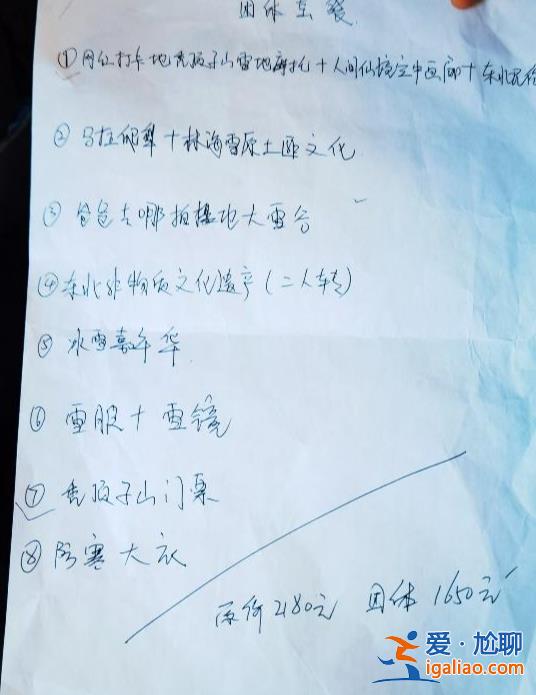 团体套餐
①网红打卡地秃顶子山雪地摩托+人间仙境空中画廊+东北民俗
②马拉爬犁+林海雪原土匪文化
③爸爸去哪拍摄地大雪谷
④东北非物质文化遗产(二人转)
⑤冰雪嘉年华
⑥雪服+雪镜
⑦秃顶子山门票
⑧防寒大衣
原价2180元 团体1650元
爱·尬聊
igaliao.com